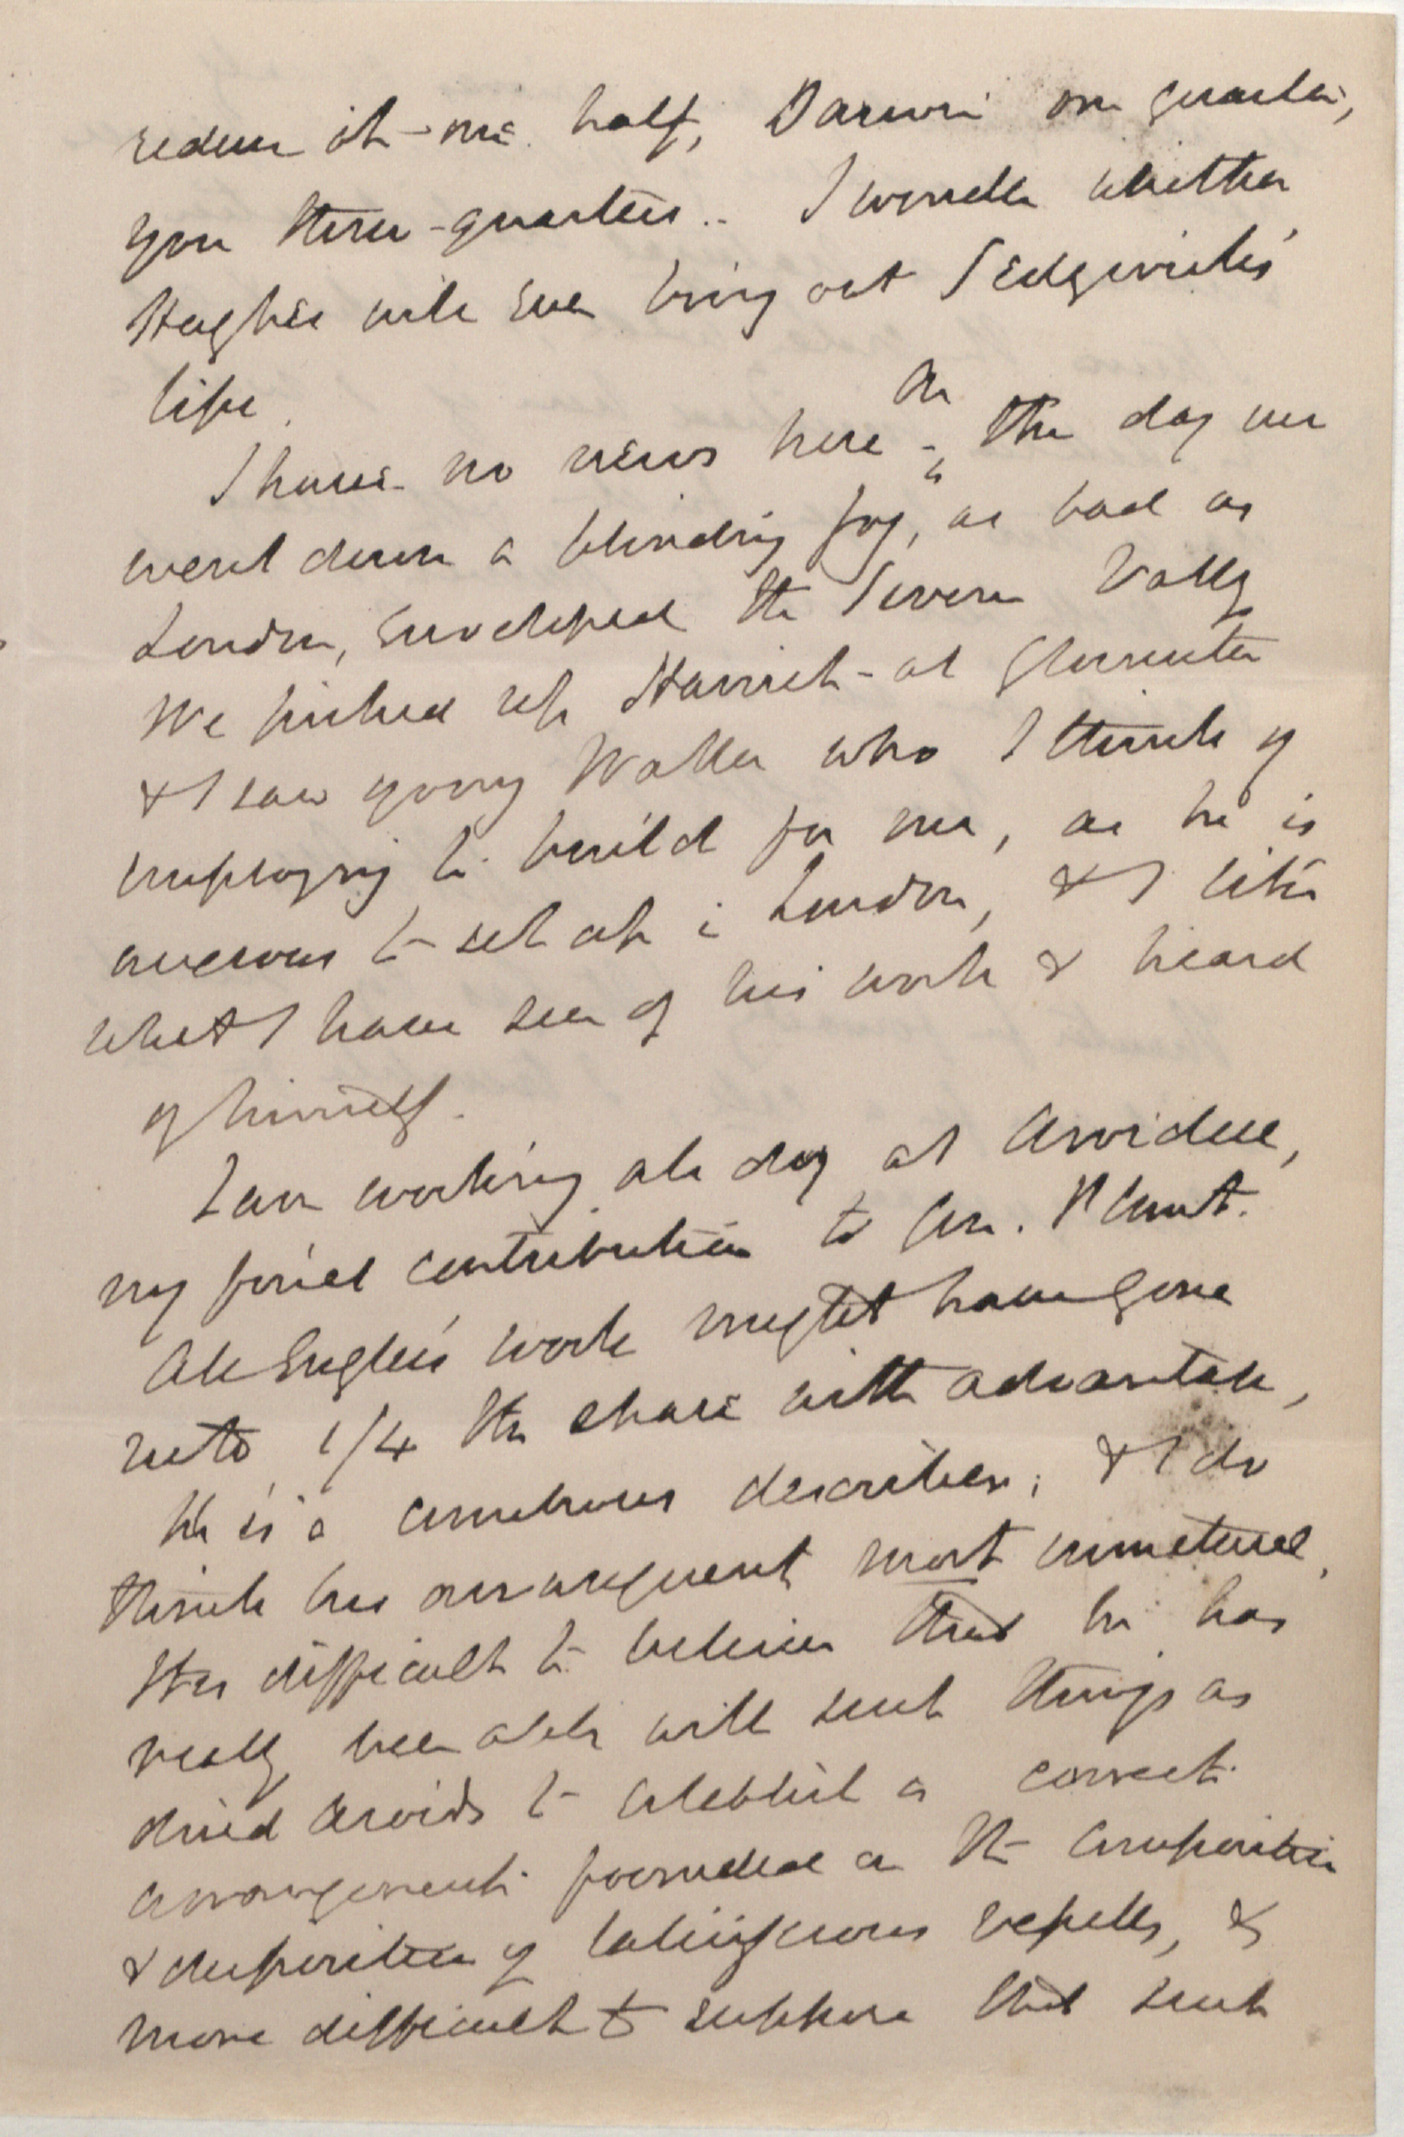 reduce it one half, Darwin one quarter,
you three-quarters.. I wonder whether
Hughes will ever bring out Sedgwick's
life.
I have no news here - On the day we
went down a blinding fog, as bad as
London, enveloped the Severn Valley
We picked up Harriet - at Gloucester
& I saw young Waller who I think of
employing to build for me, as he is
anxious to set up i London, & I like
what I have seen of his work & heard
of himself.
I am working all day at Aroideae,
my final contribution to Gen. Plant.
All Engler's work might have gone
into 1/4 the space with advantage,
He is a cumbrous describer, & I do
think his arrangement most unnatural.
It is difficult to believe that he has
really been able with such things as
dried Aroids to establish a correct
arrangement founded on the composition
& disposition of laticiferous vessels, &
more difficult to suppose that such